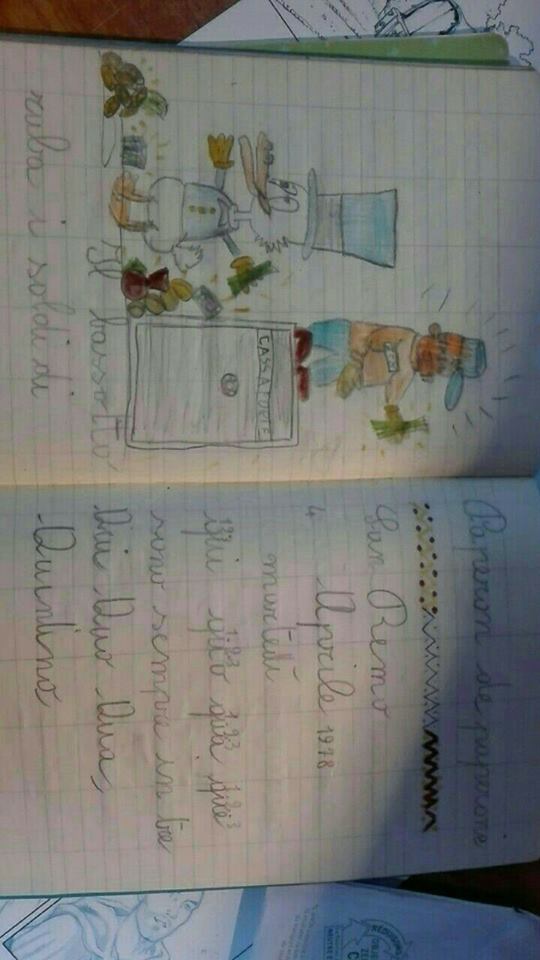 CASSAFORTE
Il bassotto
ruba i soldi di
Paperon de paperone
San Remo
4 Aprile 1978
martedì
123 123 123 123
qui quo qua que
sono sempre in tre
Qui Quo Qua,
Quintino